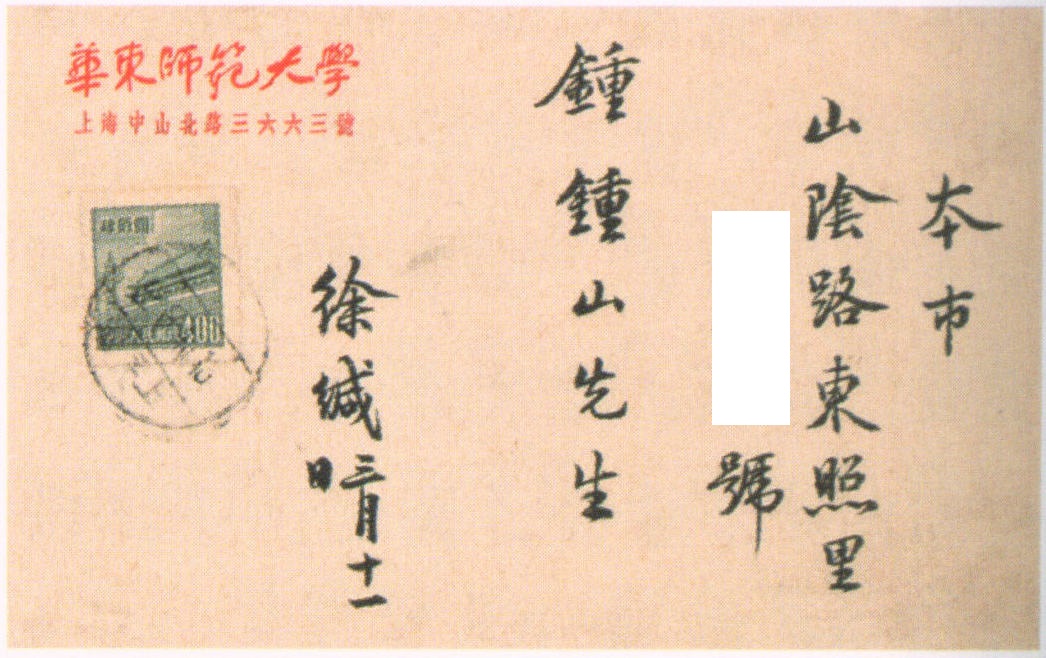 本市
山陰路東照里
號
鍾鍾山先生
徐緘 三月十一
日
華東師範大學
上海中山北路三六六三號
肆佰圓
400